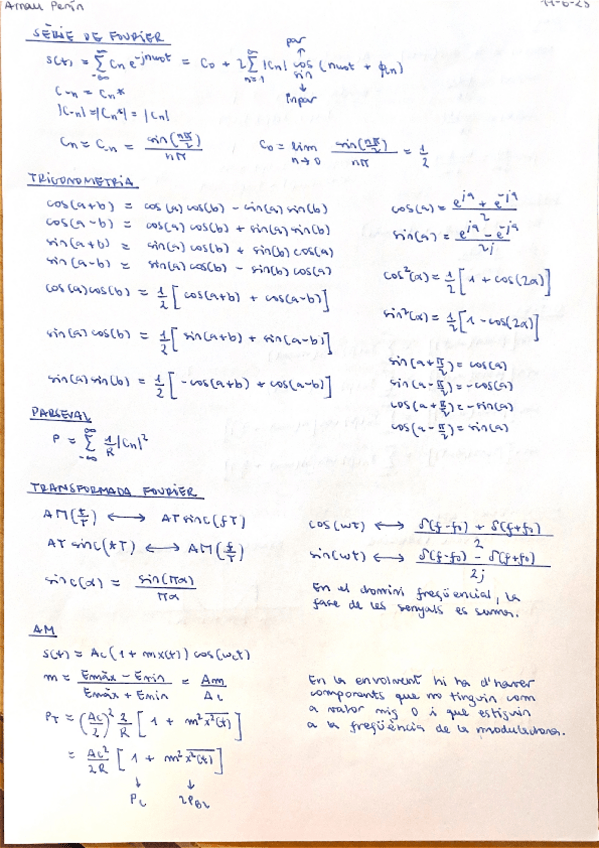 Arnau Perín 11-6-23
SÈRIE DE FOURIER
s(t) = Σ_{-∞}^{∞} Cn e^{-jnω0t} = C0 + 2 Σ_{n=1}^{∞} |Cn| cos (nω0t + φn)
par ↑
sin
↓ impar
C-n = Cn*
|C-n| = |Cn*| = |Cn|
Cn = C-n = sin(nπ/2) / nπ C0 = lim_{n→0} sin(nπ/2) / nπ = 1/2
TRIGONOMETRIA
cos(a+b) = cos(a)cos(b) - sin(a)sin(b)
cos(a-b) = cos(a)cos(b) + sin(a)sin(b)
sin(a+b) = sin(a)cos(b) + sin(b)cos(a)
sin(a-b) = sin(a)cos(b) - sin(b)cos(a)
cos(a)cos(b) = 1/2 [cos(a+b) + cos(a-b)]
sin(a)cos(b) = 1/2 [sin(a+b) + sin(a-b)]
sin(a)sin(b) = 1/2 [-cos(a+b) + cos(a-b)]
cos(a) = (e^{ja} + e^{-ja}) / 2
sin(a) = (e^{ja} - e^{-ja}) / 2j
cos²(α) = 1/2 [1 + cos(2α)]
sin²(α) = 1/2 [1 - cos(2α)]
sin(a+π/2) = cos(a)
sin(a-π/2) = -cos(a)
cos(a+π/2) = -sin(a)
cos(a-π/2) = sin(a)
PARSEVAL
P = Σ_{-∞}^{∞} 1/R |Cn|²
TRANSFORMADA FOURIER
AΠ(t/T) ⟷ AT sinc(fT)
AT sinc(tT) ⟷ AΠ(f/T)
sinc(α) = sin(πα) / πα
cos(ωt) ⟷ (δ(f-f0) + δ(f+f0)) / 2
sin(ωt) ⟷ (δ(f-f0) - δ(f+f0)) / 2j
En el domini freqüencial, la
fase de les senyals es sumen.
AM
s(t) = Ac(1 + mx(t)) cos(ωct)
m = (Emàx - Emin) / (Emàx + Emin) = Am / Ac
PT = (Ac/2)² 2/R [1 + m² x²(t)]
= Ac²/2R [1 + m² x²(t)]
↓ ↓
Pc 2PBL
En la envolvent hi ha d'haver
components que no tinguin com
a valor mig 0 i que estiguin
a la freqüència de la moduladora.